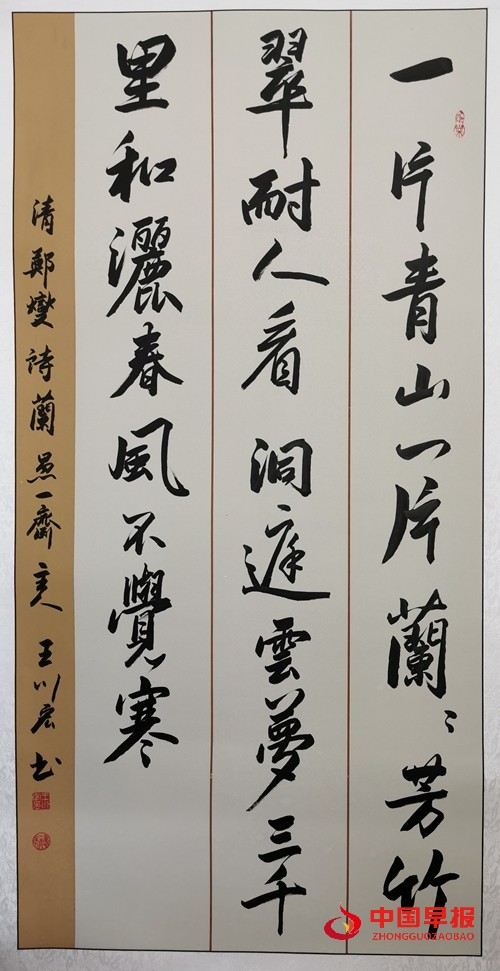 一片青山一片蘭〻芳竹
翠耐人看洞庭雲夢三千
里和灑春風不覺寒
清鄭燮詩蘭一齋主人王川宏书
中国早报
ZHONGGUOZAOBAO